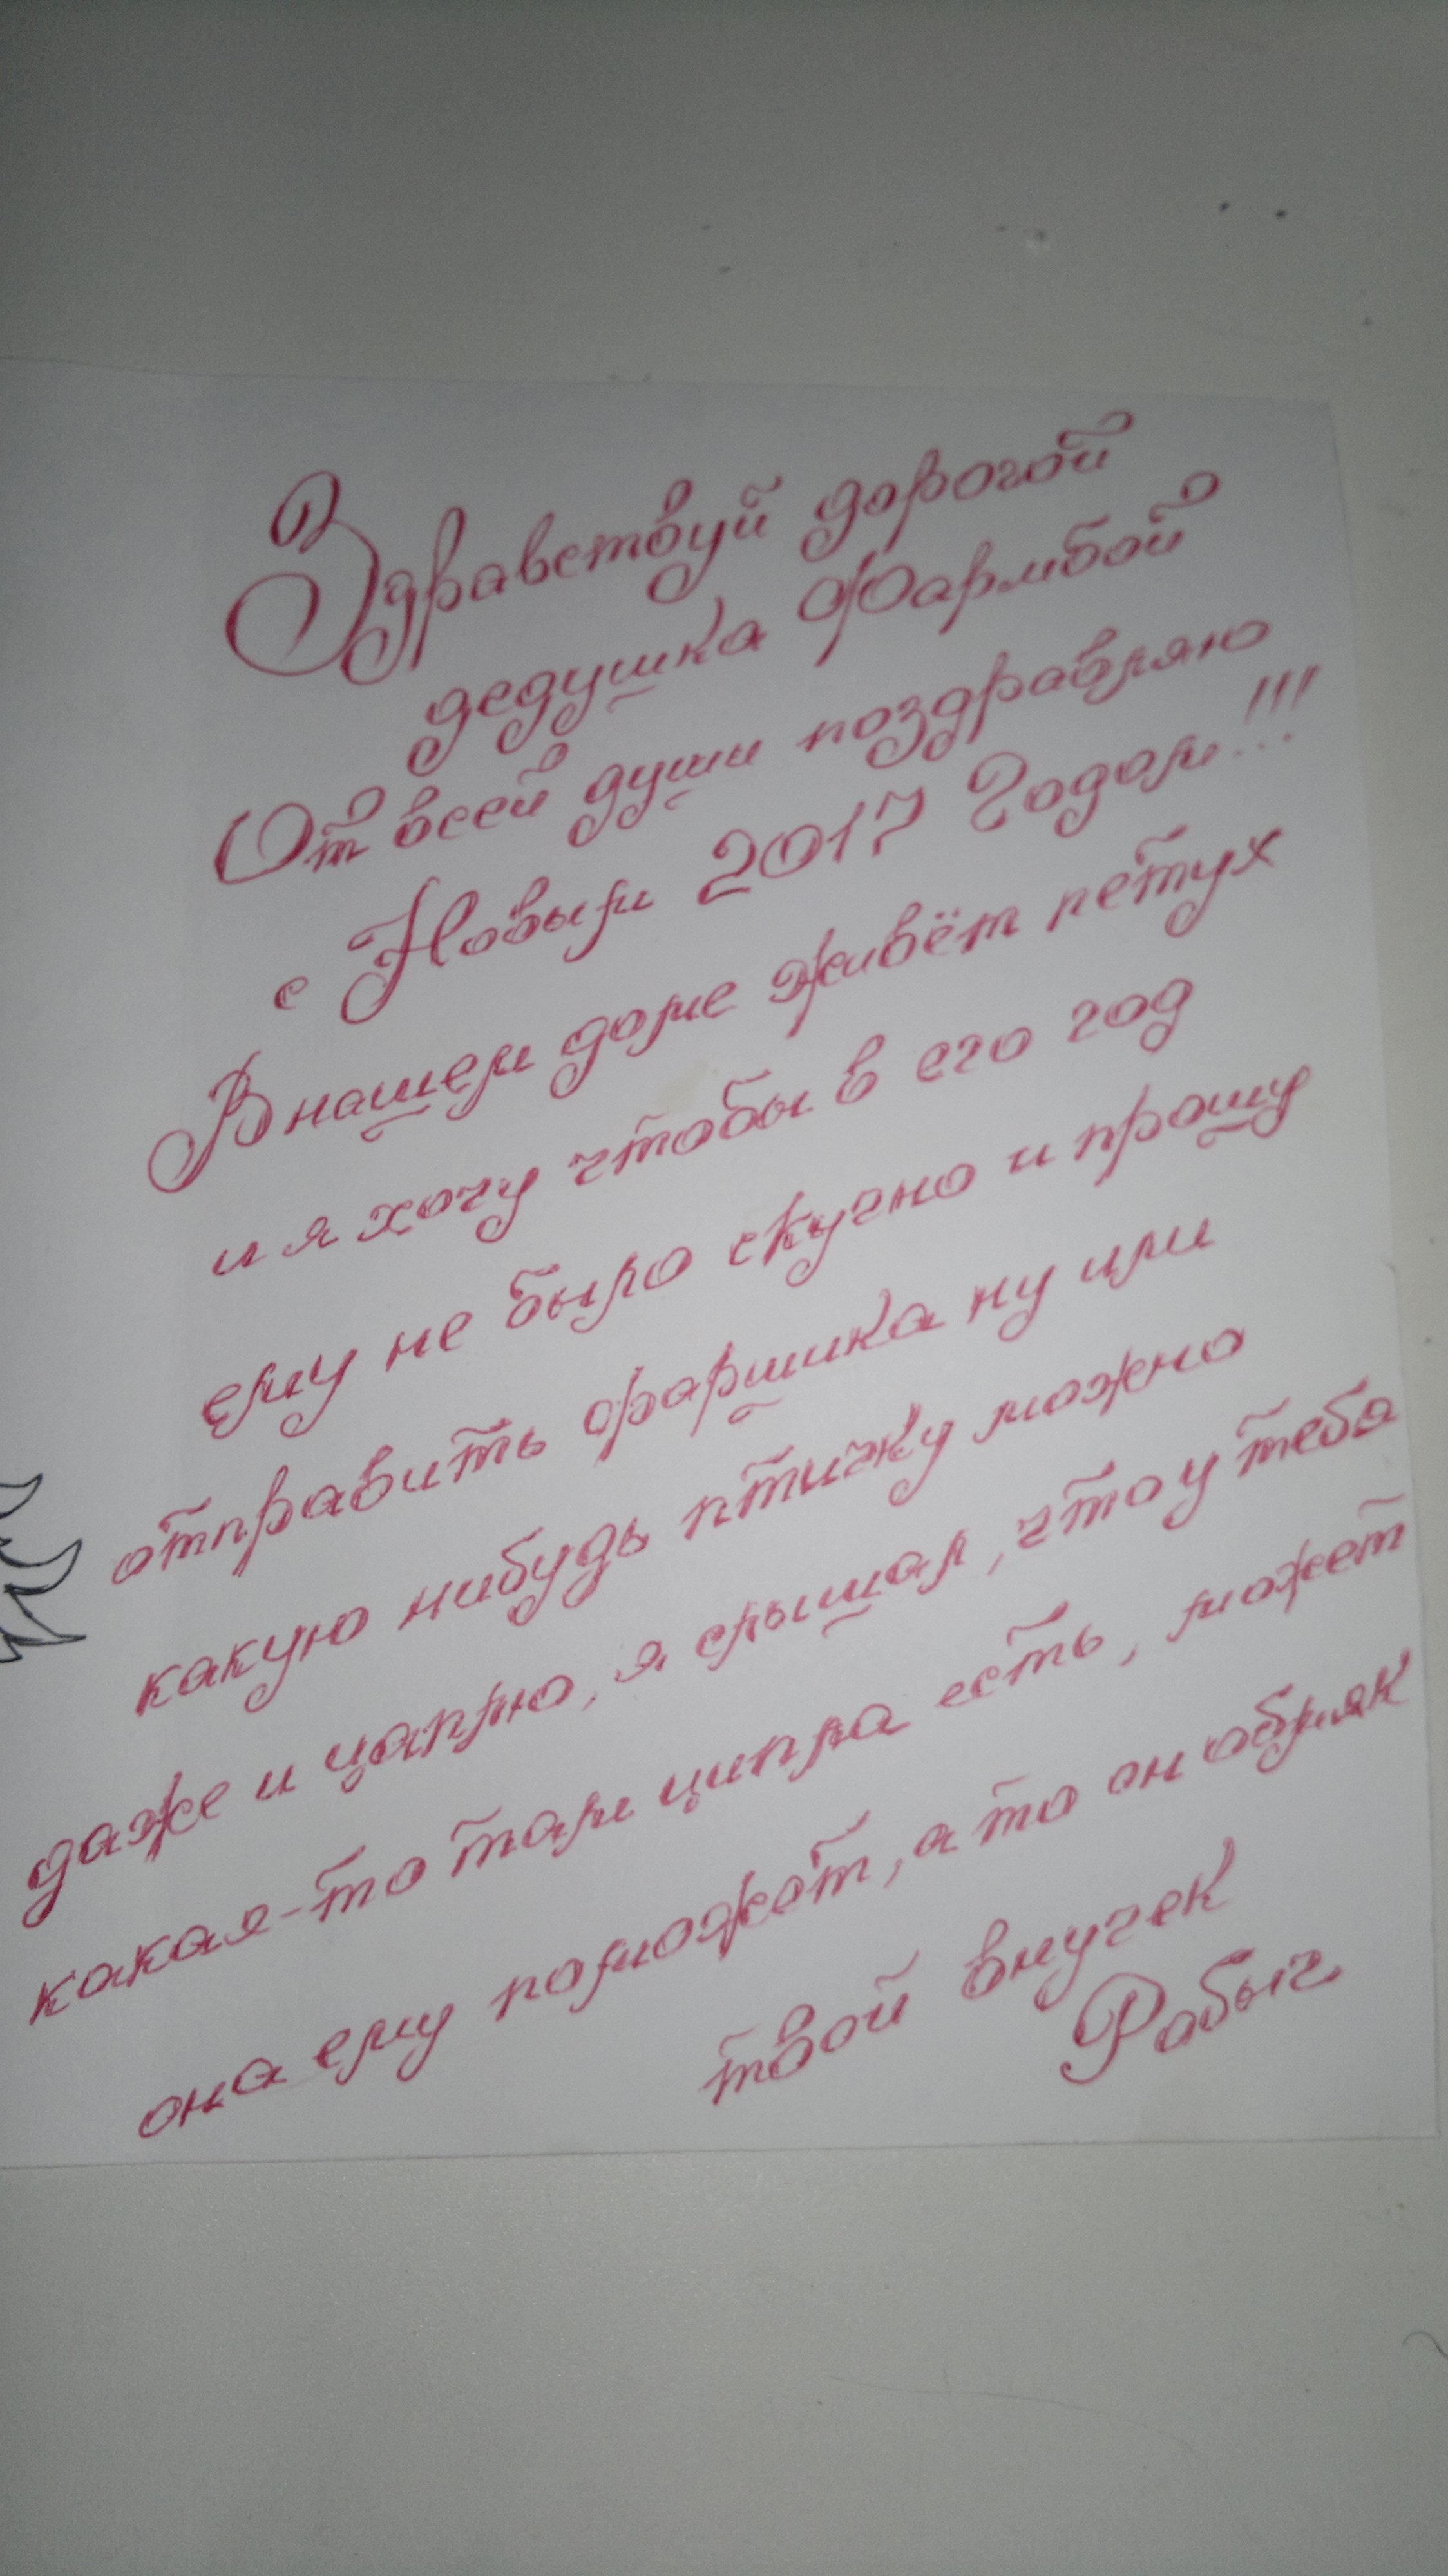 Здравствуй дорогой
дедушка Фармбой
От всей души поздравляю
с Новым 2017 Годом!!!
В нашем доме живёт петух
и я хочу чтобы в его год
ему не было скучно и прошу
отправить фаршика ну или
какую нибудь птичку можно
даже и цаплю, я слышал, что у тебя
какая-то там ципла есть, может
она ему поможет, а то он обмяк
твой внучек
Рабыч